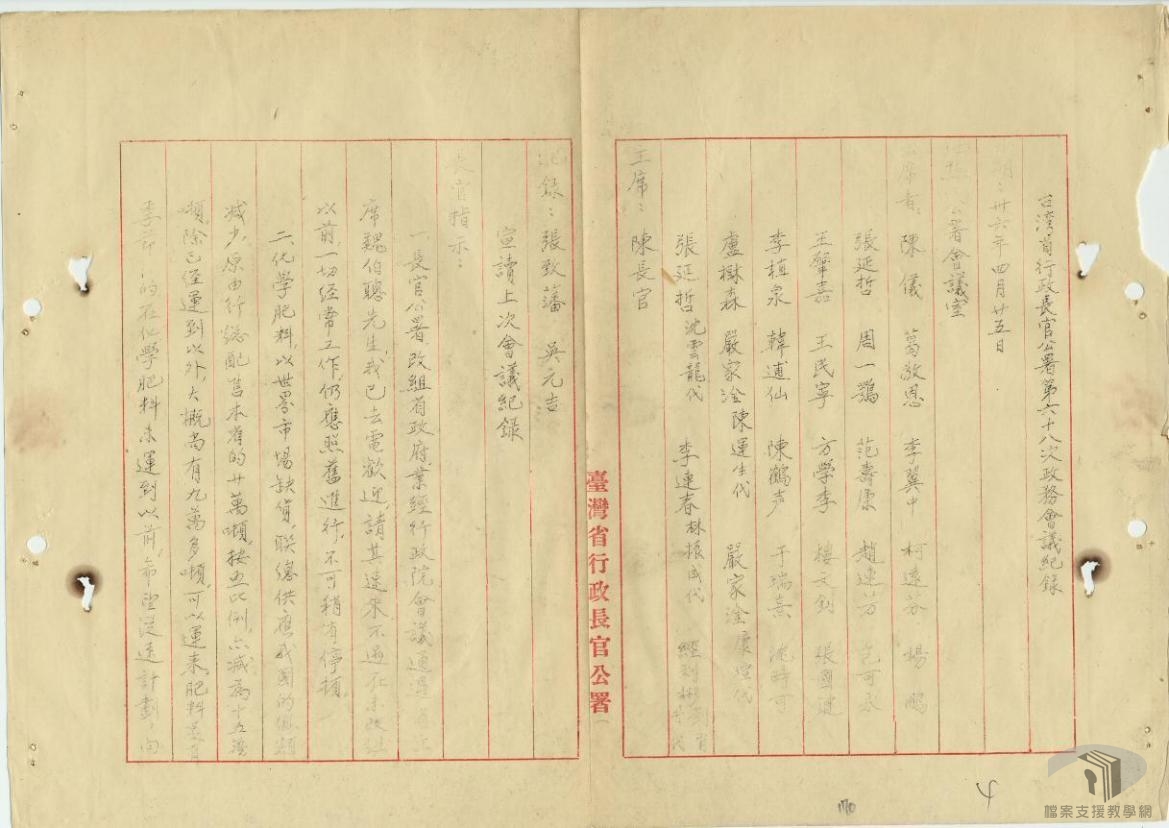 台湾省行政長官公署第六十八次政務會議紀錄
期：卅六年四月廿五日
公署會議室
席者：陳儀 葛敬恩 李翼中 柯遠芬 楊鵬
張延哲 周一鶚 范壽康 趙連芳 包可永
王肇嘉 王民寧 方學李 樓文釗 張國鍵
李植泉 韓逋仙 陳鶴声 于瑞熹 沈時可
盧樹森 嚴家淦陳運生代 嚴家淦康瑄代
張延哲沈雲龍代 李連春林振成代
主席：陳長官
臺灣省行政長官公署
紀錄：張致藩 吳元吉
宣讀上次會議紀錄
長官指示：
一、長官公署改組省政府業經行政院會議通過，
席魏伯聰先生我已去電歡迎，請其速來，不過在未改組
以前，一切經常工作，仍應照舊進行，不可稍有停頓。
二、化学肥料，以世界市場缺貨，聯總供應我國的數額
減少，原由行總配售本省的廿萬噸，按照比例，亦減為十五萬
噸除已經運到以外，大概尚有九萬多噸，可以運來，肥料是有
季節的在化學肥料未運到以前，希望從速計劃，由
170
檔案支援教學網